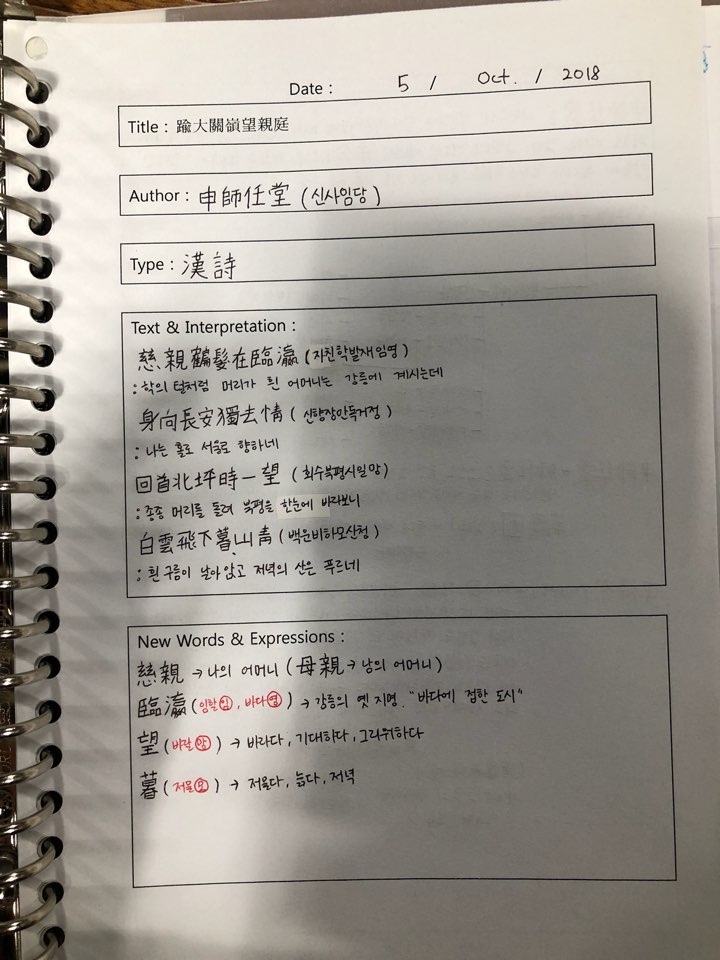 Date : 5 / Oct. / 2018
Title : 踰大關嶺望親庭
Author : 申師任堂 (신사임당)
Type : 漢詩
Text & Interpretation :
慈親鶴髮在臨瀛 (자친학발재임영)
: 학의 털처럼 머리가 흰 어머니는 강릉에 계시는데
身向長安獨去情 (신향장안독거정)
: 나는 홀로 서울로 향하네
回首北坪時一望 (회수북평시일망)
: 종종 머리를 돌려 북평을 한눈에 바라보니
白雲飛下暮山青 (백운비하모산청)
: 흰 구름이 날아 앉고 저녁의 산은 푸르네
New Words & Expressions :
慈親 → 나의 어머니 (母親 → 남의 어머니)
臨瀛 (임할 임, 바다 영) → 강릉의 옛 지명. "바다에 접한 도시"
望 (바랄 망) → 바라다, 기대하다, 그리워하다
暮 (저물 모) → 저물다, 늙다, 저녁